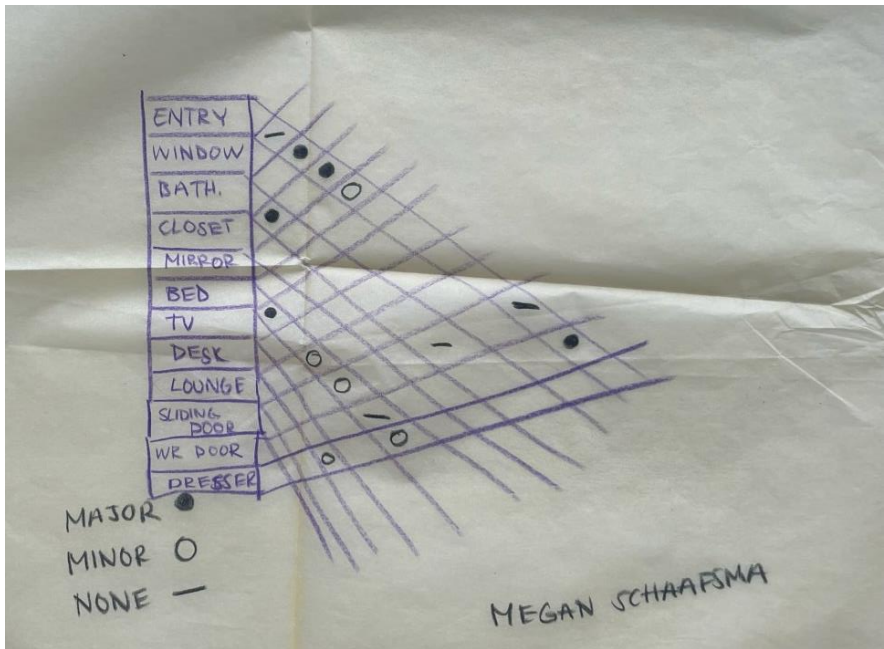 ENTRY
WINDOW
BATH.
CLOSET
MIRROR
BED
TV
DESK
LOUNGE
SLIDING
DOOR
WR DOOR
DRESSER
MAJOR
MINOR
NONE
MEGAN SCHAAFSMA